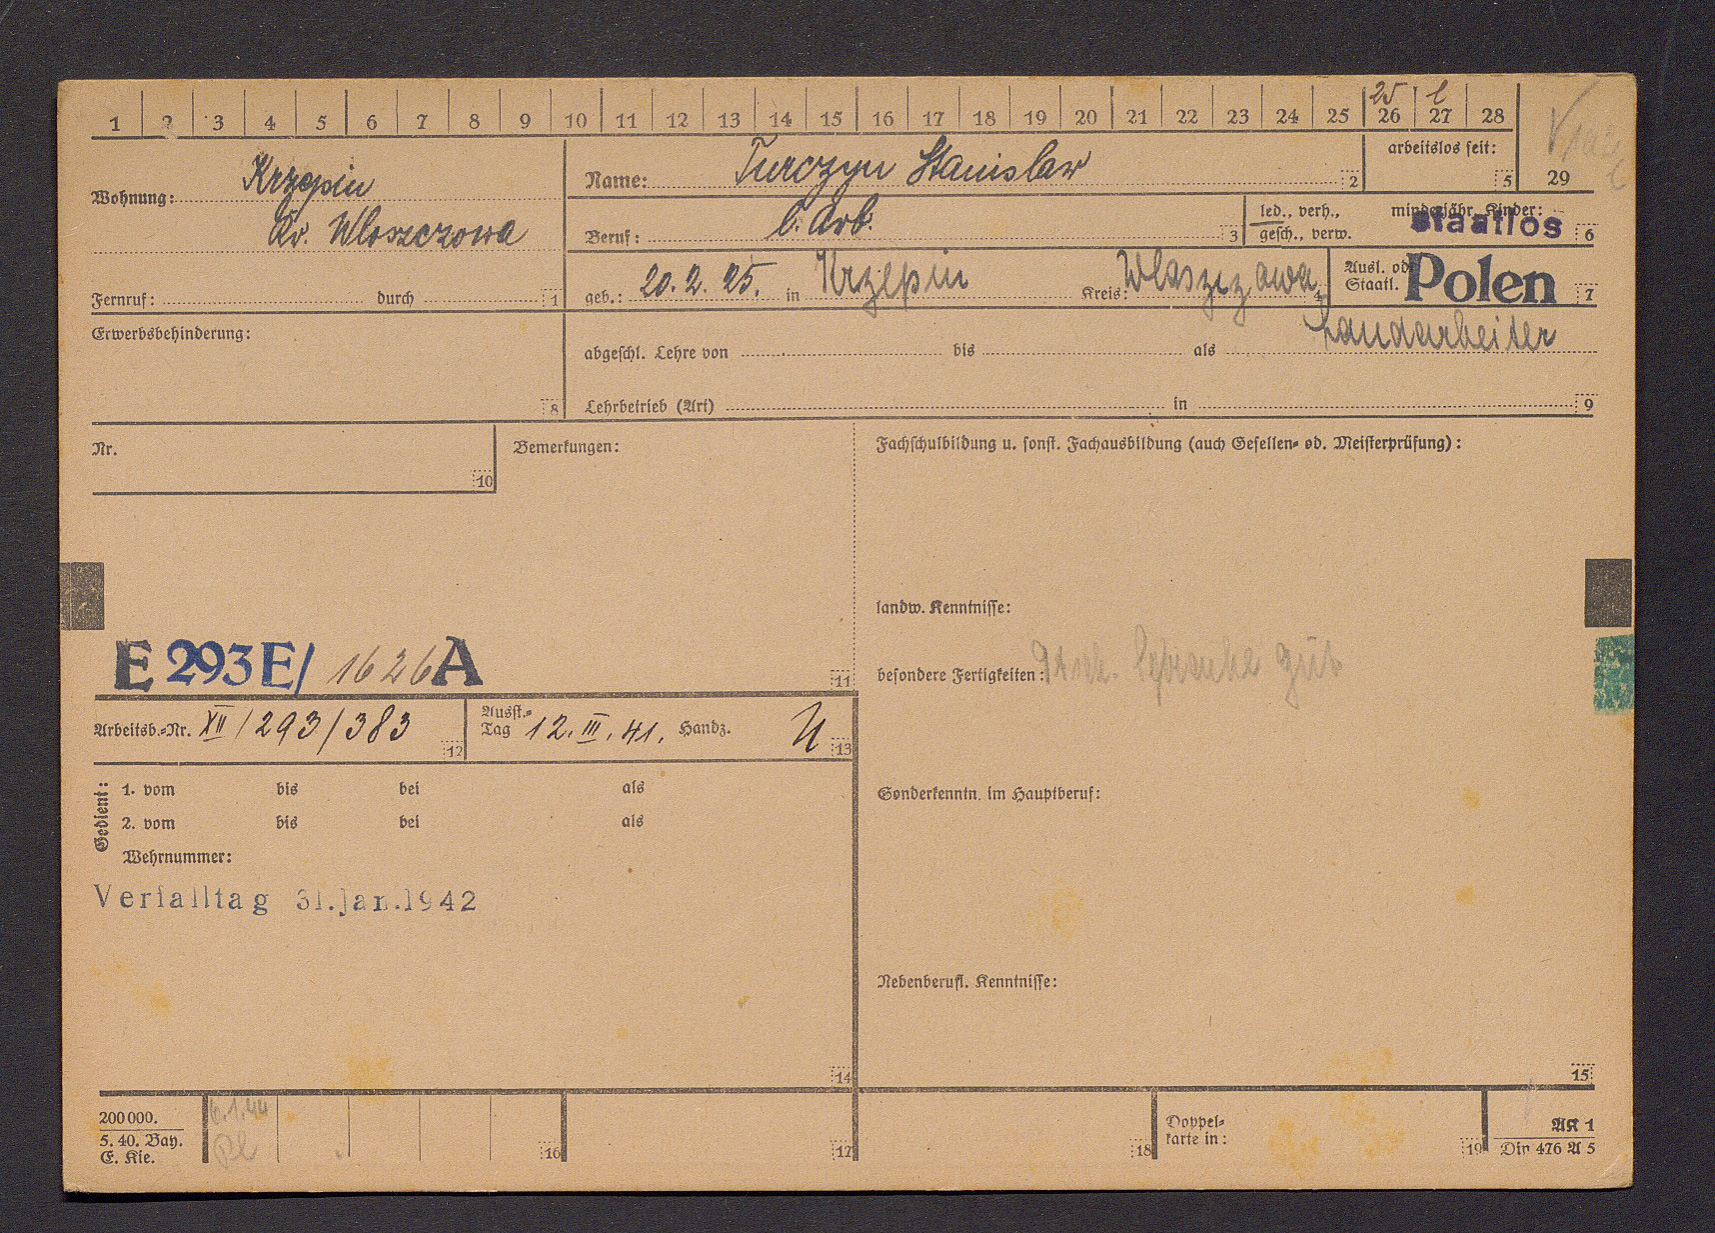 25 l
1 2 3 4 5 6 7 8 9 10 11 12 13 14 15 16 17 18 19 20 21 22 23 24 25 26 27 28
29
Wohnung: Krzepin
Kr. Wloszczowa
Fernruf: durch 1
Name: Turczyn Stanislaw 2
arbeitslos seit: 5
Beruf: l. Arb. 3
led., verh., minderjähr. Kinder:
gesch., verw. 6
Staatlos
geb.: 20.2.25. in Krzepin Kreis: Wloszczowa 4
Ausl. od.
Staatl. Polen 7
Erwerbsbehinderung:
8
abgeschl. Lehre von bis als Landarbeiter
Lehrbetrieb (Art) in 9
Nr.
10
Bemerkungen:
Fachschulbildung u. sonst. Fachausbildung (auch Gesellen- od. Meisterprüfung):
landw. Kenntnisse:
E 293 E/ 1626 A
11
besondere Fertigkeiten: Sprache gut
Arbeitsb.-Nr. XII/293/383 12
Ausst.-
Tag 12.III.41. Handz. 13
Gedient:
1. vom bis bei als
2. vom bis bei als
Wehrnummer:
Verfalltag 31.Jan.1942
14
Sonderkenntn. im Hauptberuf:
Nebenberufl. Kenntnisse:
15
200 000.
5. 40. Bay.
E. Kie.
6.1.44
16
17
18
Doppel-
karte in: 19
AK 1
Din 476 A 5